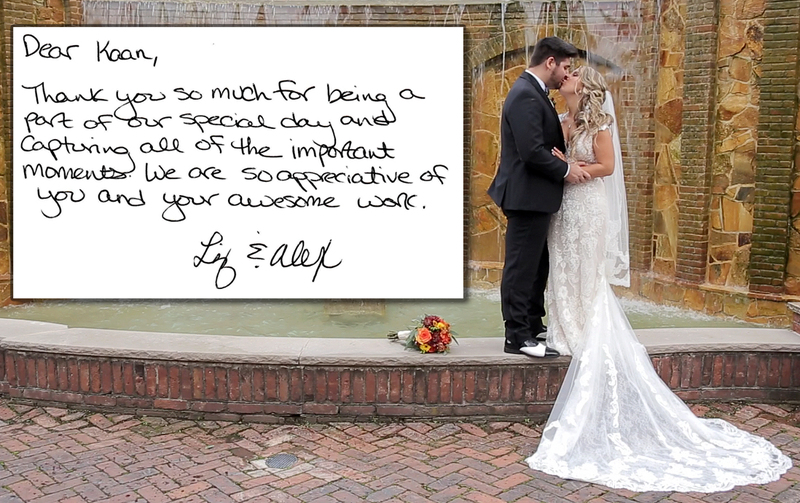 Dear Kaan,
Thank you so much for being a
part of our special day and
capturing all of the important
moments. We are so appreciative of
you and your awesome work.
Liz & Alex